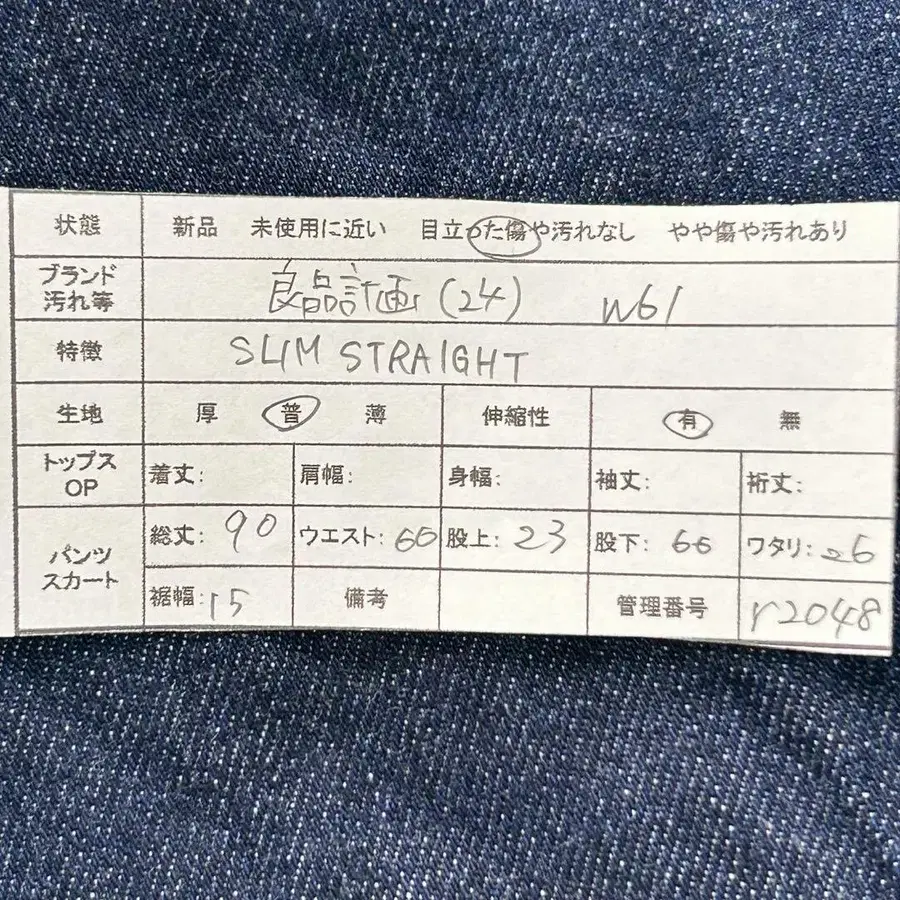 状態 新品 未使用に近い 目立った傷や汚れなし やや傷や汚れあり
ブランド
汚れ等 良品計画(24) W61
特徴 SLIM STRAIGHT
生地 厚 普 薄 伸縮性 有 無
トップス
OP 着丈: 肩幅: 身幅: 袖丈: 裄丈:
パンツ
スカート 総丈: 90 ウエスト: 60 股上: 23 股下: 66 ワタリ: 26
裾幅: 15 備考 管理番号 r2048